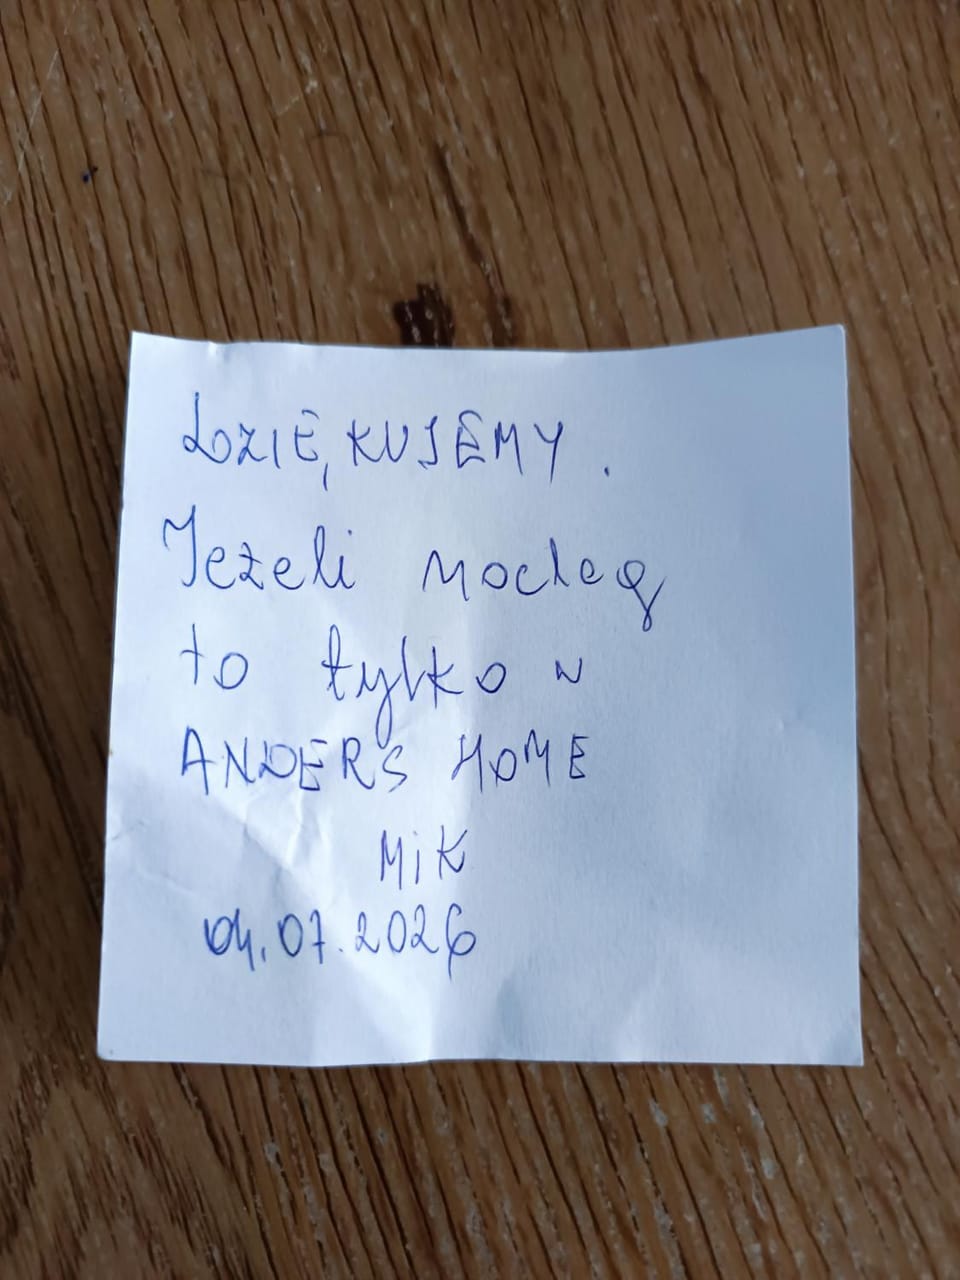 DZIĘKUJEMY.
Jeżeli nocleg
to tylko w
ANDERS HOME
MiK
04.07.2026